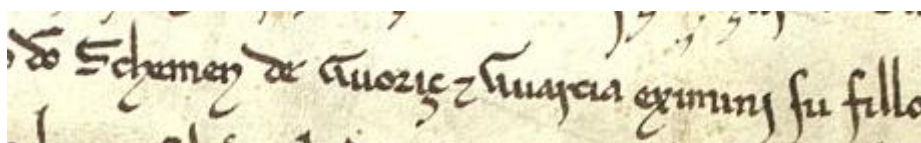 do Schemen de Guoriç ⁊ Guarcia eximini su fillo